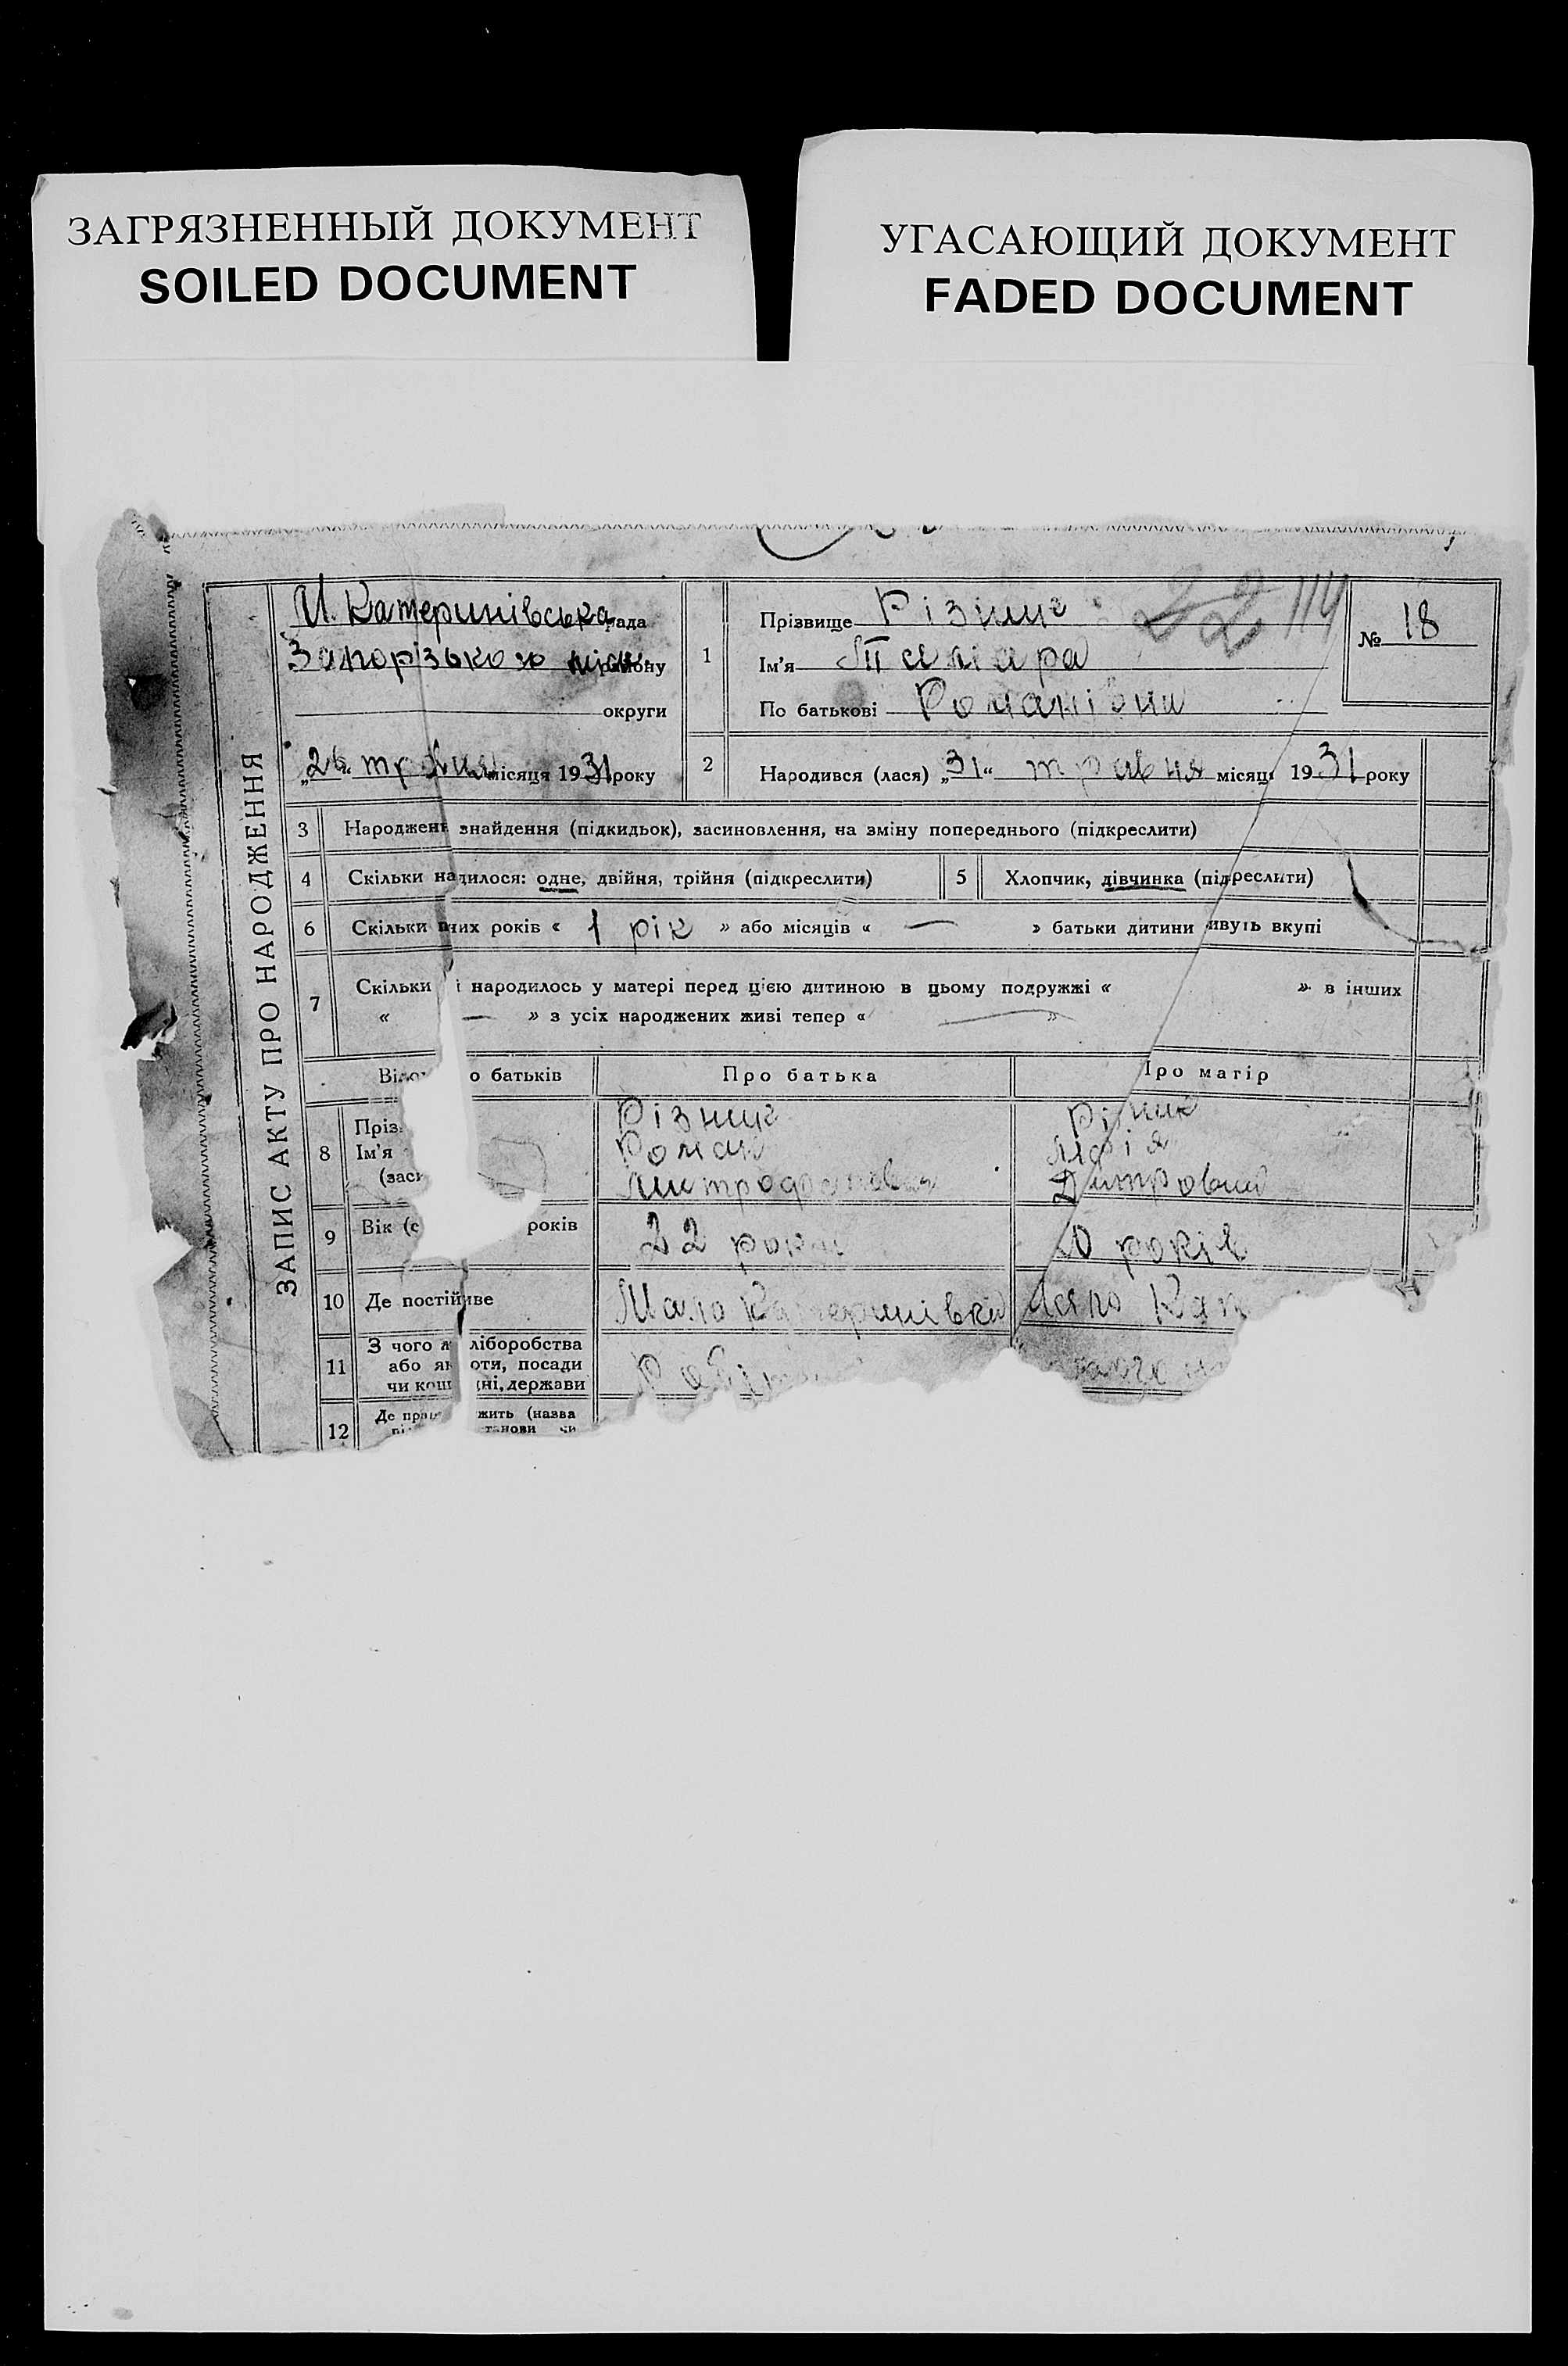 ЗАГРЯЗНЕННЫЙ ДОКУМЕНТ
SOILED DOCUMENT
УГАСАЮЩИЙ ДОКУМЕНТ
FADED DOCUMENT
ЗАПИС АКТУ ПРО НАРОДЖЕННЯ
Катеринівська рада
Запорізького району
округи
травня місяця 1931 року
1
Прізвище Різник
Ім'я Тамара
По батькові Романівни
22 114
№ 18
2 Народився (лася) „31“ травня місяця 1931 року
3 Народжен знайдення (підкидьок), засиновлення, на зміну попереднього (підкреслити)
4 Скільки на дилося: одне, двійня, трійня (підкреслити)
5 Хлопчик, дівчинка (підкреслити)
6 Скільки них років « 1 рік » або місяців « — » батьки дитини ивуть вкупі
7 Скільки і народилось у матері перед цією дитиною в цьому подружжі « » в інших
« — » з усіх народжених живі тепер « — »
Відо о батьків Про батька Про матір
8 Пріз Різник Різник
Ім'я Роман Марія
(заси Митрофанович Дмитровна
9 Вік (с років 22 роки 0 років
10 Де постій иве Мало Катеринівка Мало Кат
11 З чого ліборобства
або як оти, посади
чи кош ні, держави
12 Де пра жить (назва
танови чи